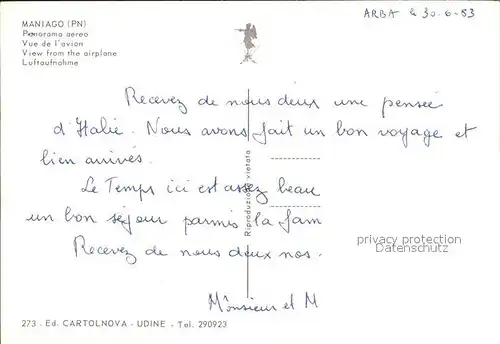 MANIAGO (PN)
Panorama aereo
Vue de l'avion
View from the airplane
Luftaufnahme
ARBA le 30-6-83
Recevez de nous deux une pensée
d'Italie. Nous avons fait un bon voyage et
bien arrivés.
Le Temps ici est assez beau
un bon séjour parmis la fam
Recevez de nous deux nos.
Monsieur et M
Riproduzione vietata
privacy protection
Datenschutz
273 - Ed. CARTOLNOVA - UDINE - Tel. 290923